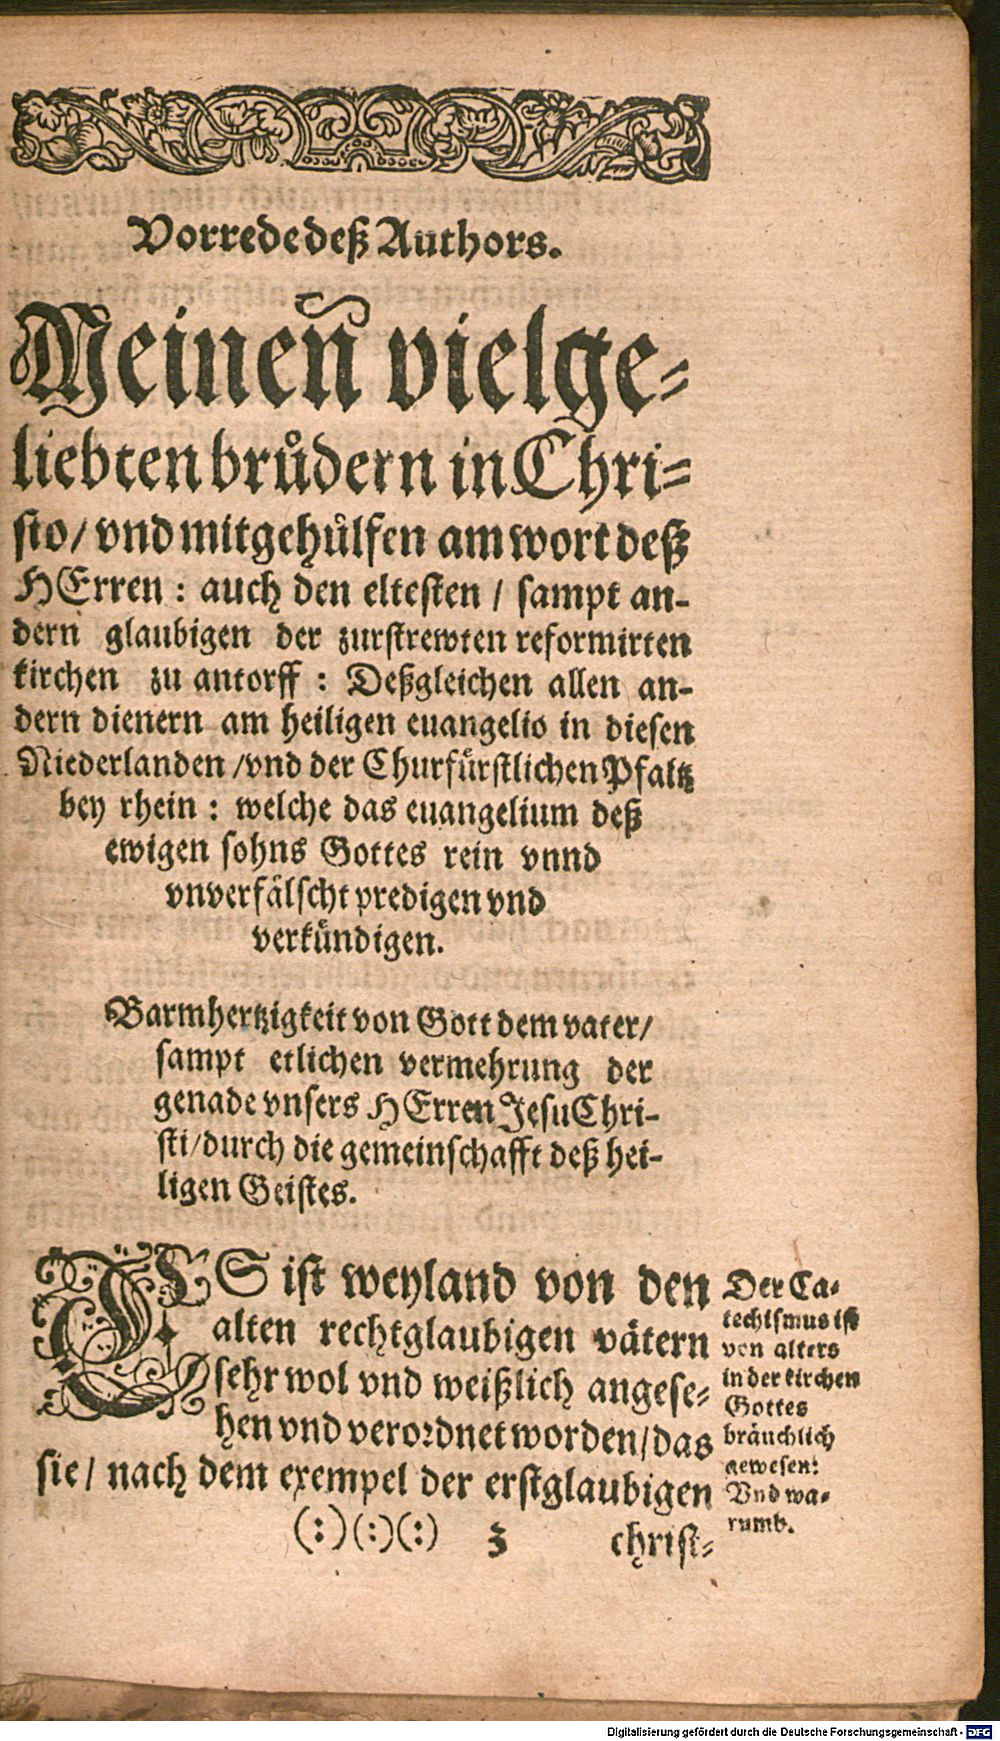 Vorrede deß Authors.
Meinen̄ vielge-
liebten brůdern in Chri-
sto/ vnd mitgehůlfen am wort deß
HErren : auch den eltesten / sampt an-
dern glaubigen der zurstrewten reformirten
kirchen zu antorff : Deßgleichen allen an-
dern dienern am heiligen euangelio in diesen
Niederlanden /vnd der Churfürstlichen Pfaltz
bey rhein : welche das euangelium deß
ewigen sohns Gottes rein vnnd
vnverfälscht predigen vnd
verkündigen.
Barmhertzigkeit von Gott dem vater/
sampt etlichen vermehrung der
genade vnsers HErren Jesu Chri-
sti/durch die gemeinschafft deß hei-
ligen Geistes.
ES ist weyland von den
alten rechtglaubigen vätern
sehr wol vnd weißlich angese-
hen vnd verordnet worden/das
sie/ nach dem exempel der erstglaubigen
(:)(:)(:) 3 christ-
Der Ca-
techismus ist
von alters
in der kirchen
Gottes
bräuchlich
gewesen:
Vnd wa-
rumb.
Digitalisierung gefördert durch die Deutsche Forschungsgemeinschaft - DFG